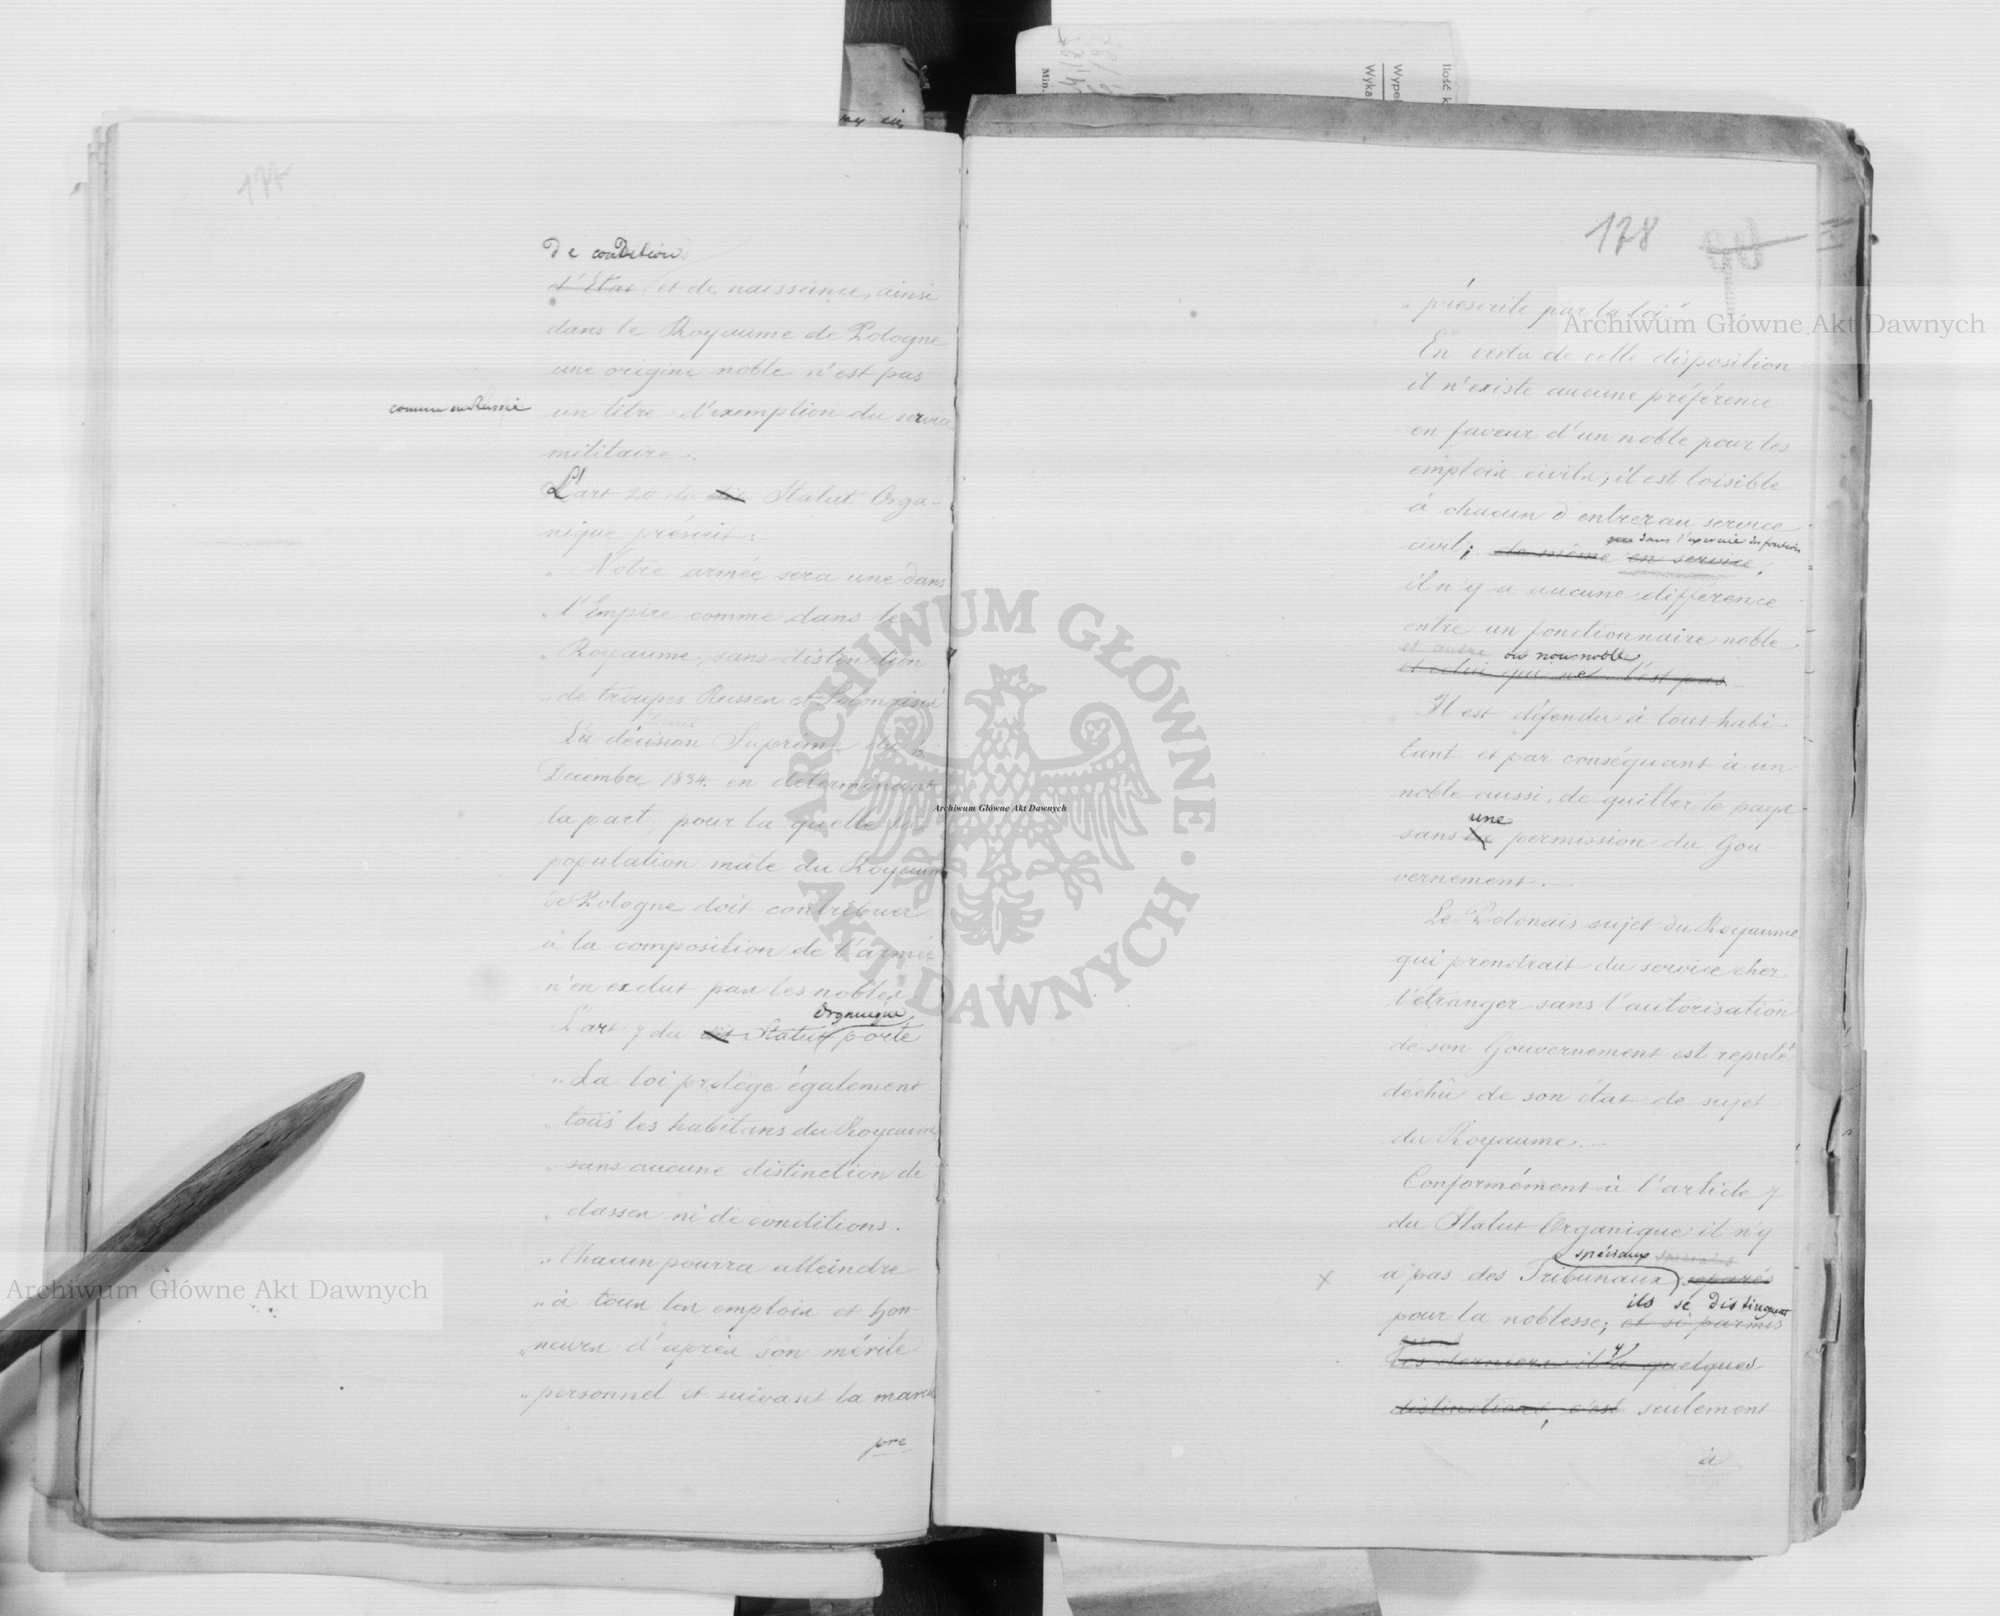 177
de conditions
d'Etat et de naissance, ainsi
dans le Royaume de Pologne
une origine noble n'est pas
comme en Russie
un titre d'exemption du service
militaire.
L'art 20 du dit Statut Orga-
nique préscrit:
„ Notre armée sera une dans
„ l'Empire comme dans le
„ Royaume, sans distinction
„ de troupes Russes et Polonaises
La décision Suprême du
Décembre 1834. en déterminant
la part, pour la quelle la
population mâle du Royaume
de Pologne doit contribuer
à la composition de l'armée
n'en exclut pas les nobles
organique
L'art 7 du dit Statut porte
„ La loi protège également
„ tous les habitans du Royaume
„ sans aucune distinction de
„ classes ni de conditions.
„ Chacun pourra atteindre
„ à tous les emplois et hon-
„ neurs d'après son mérite
„ personnel et suivant la marche
pre
178
„ préscrite par la loi"
En vertu de cette disposition
il n'existe aucune préférence
en faveur d'un noble pour les
emplois civils; il est loisible
à chacun d'entrer au service
dans l'exercice des fonctions
civil; de même en service,
il n'y a aucune différence
entre un fonctionnaire noble
et autre ou non noble
et celui qui ne l'est pas
Il est défendu à tout habi-
tant et par conséquant à un
noble aussi, de quitter le pays
une
sans la permission du Gou-
vernement.
Le Polonais sujet du Royaume
qui prendrait du service chez
l'étranger sans l'autorisation
de son Gouvernement est reputé
déchû de son état de sujet
du Royaume.
Conformément à l'article 7
du Statut Organique il n'y
spéciaux
x a pas des Tribunaux separés
ils se distinguent
pour la noblesse; et si parmis
ces derniers il y a quelques
distinctions, c'est seulement
à
Archiwum Główne Akt Dawnych
Archiwum Główne Akt Dawnych
Archiwum Główne Akt Dawnych
ARCHIWUM GŁÓWNE · AKT DAWNYCH ·
Min.
Wyka
Wypeł
Ilość k